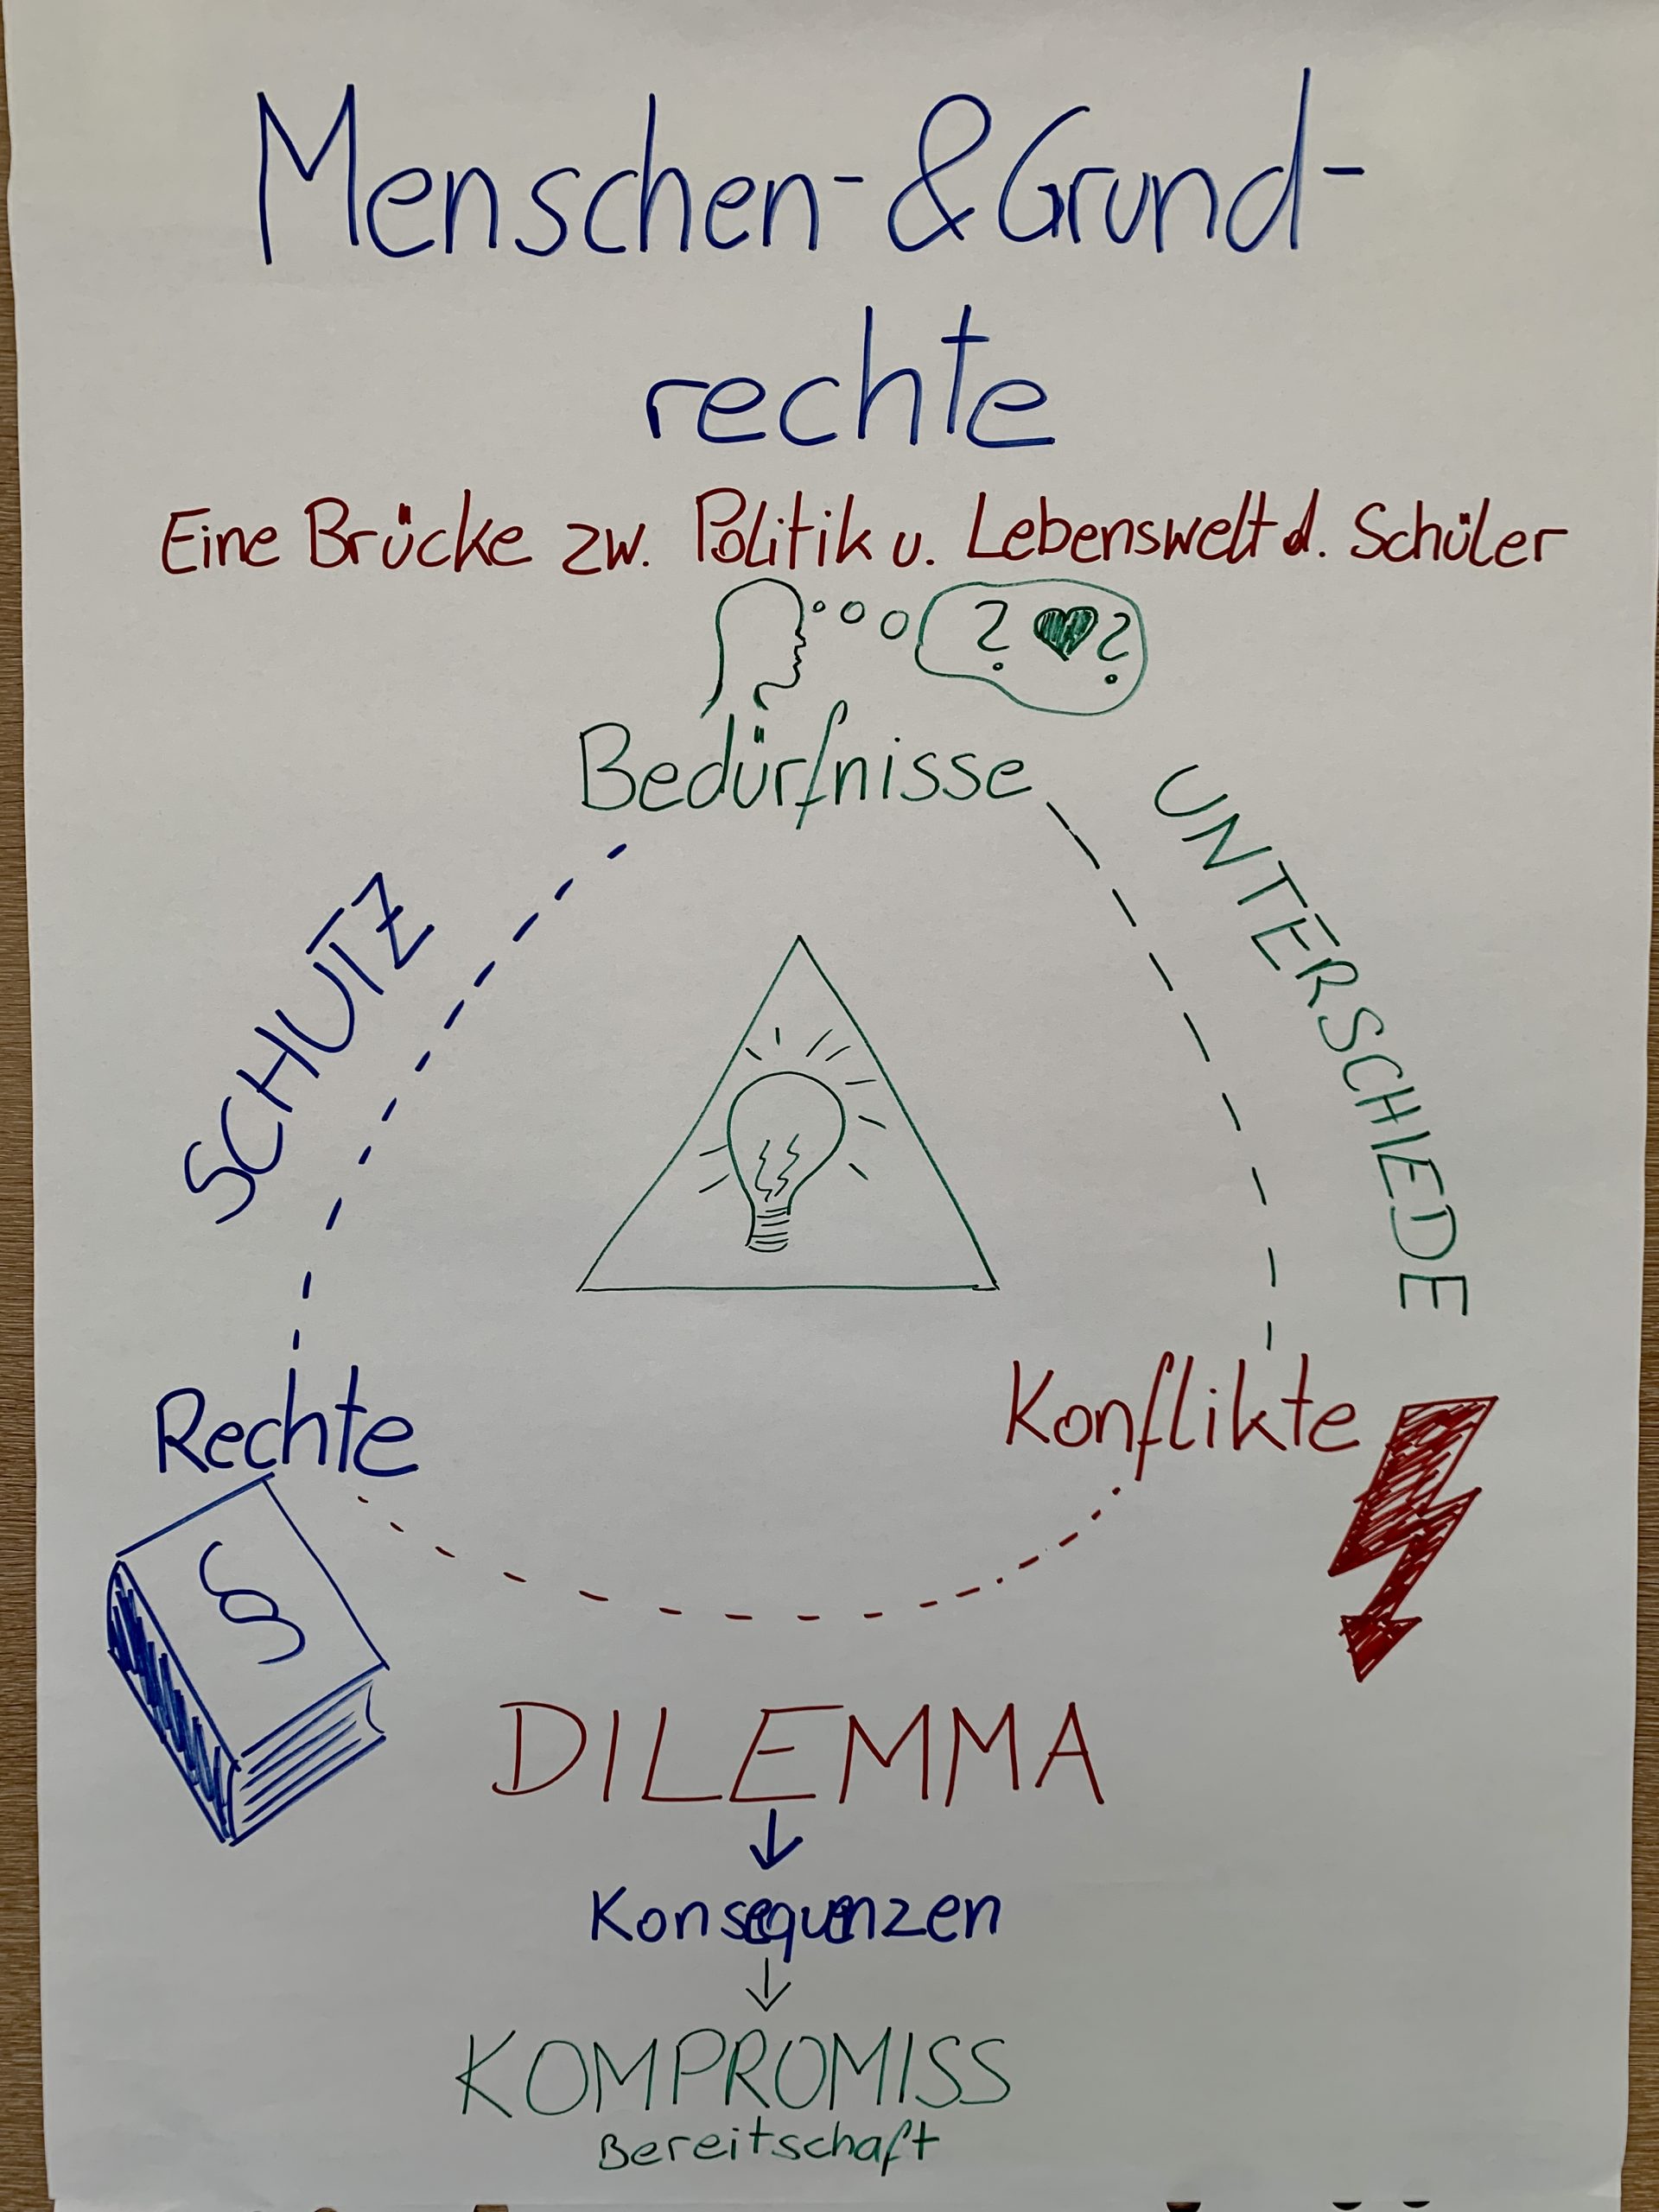 Menschen- & Grund-
rechte
Eine Brücke zw. Politik u. Lebenswelt d. Schüler
? ?
Bedürfnisse
UNTERSCHIEDE
SCHUTZ
Rechte
Konflikte
§
DILEMMA
Konsequenzen
KOMPROMISS
Bereitschaft